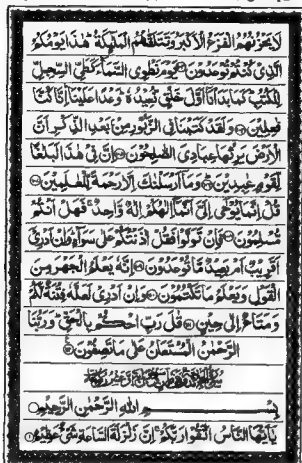 لَا يَحْزُنُهُمُ الْفَزَعُ الْاَكْبَرُ وَتَتَلَقّٰىهُمُ الْمَلٰٓئِكَةُ ؕ هٰذَا يَوْمُكُمُ
الَّذِىْ كُنْتُمْ تُوْعَدُوْنَ يَوْمَ نَطْوِى السَّمَآءَ كَطَىِّ السِّجِلِّ
لِلْكُتُبِ ؕ كَمَا بَدَاْنَاۤ اَوَّلَ خَلْقٍ نُّعِيْدُهٗ ؕ وَعْدًا عَلَيْنَا ؕ اِنَّا كُنَّا
فٰعِلِيْنَ وَلَقَدْ كَتَبْنَا فِى الزَّبُوْرِ مِنْۢ بَعْدِ الذِّكْرِ اَنَّ
الْاَرْضَ يَرِثُهَا عِبَادِىَ الصّٰلِحُوْنَ اِنَّ فِىْ هٰذَا لَبَلٰغًا
لِّقَوْمٍ عٰبِدِيْنَ وَمَاۤ اَرْسَلْنٰكَ اِلَّا رَحْمَةً لِّلْعٰلَمِيْنَ
قُلْ اِنَّمَا يُوْحٰٓى اِلَىَّ اَنَّمَاۤ اِلٰهُكُمْ اِلٰهٌ وَّاحِدٌ ۚ فَهَلْ اَنْتُمْ
مُّسْلِمُوْنَ فَاِنْ تَوَلَّوْا فَقُلْ اٰذَنْتُكُمْ عَلٰى سَوَآءٍ ؕ وَاِنْ اَدْرِىْۤ
اَقَرِيْبٌ اَمْ بَعِيْدٌ مَّا تُوْعَدُوْنَ اِنَّهٗ يَعْلَمُ الْجَهْرَ مِنَ
الْقَوْلِ وَيَعْلَمُ مَا تَكْتُمُوْنَ وَاِنْ اَدْرِىْ لَعَلَّهٗ فِتْنَةٌ لَّكُمْ
وَمَتَاعٌ اِلٰى حِيْنٍ قٰلَ رَبِّ احْكُمْ بِالْحَقِّ ؕ وَرَبُّنَا
الرَّحْمٰنُ الْمُسْتَعَانُ عَلٰى مَا تَصِفُوْنَ
بِسْمِ اللّٰهِ الرَّحْمٰنِ الرَّحِيْمِ
يٰۤاَيُّهَا النَّاسُ اتَّقُوْا رَبَّكُمْ ۚ اِنَّ زَلْزَلَةَ السَّاعَةِ شَىْءٌ عَظِيْمٌ